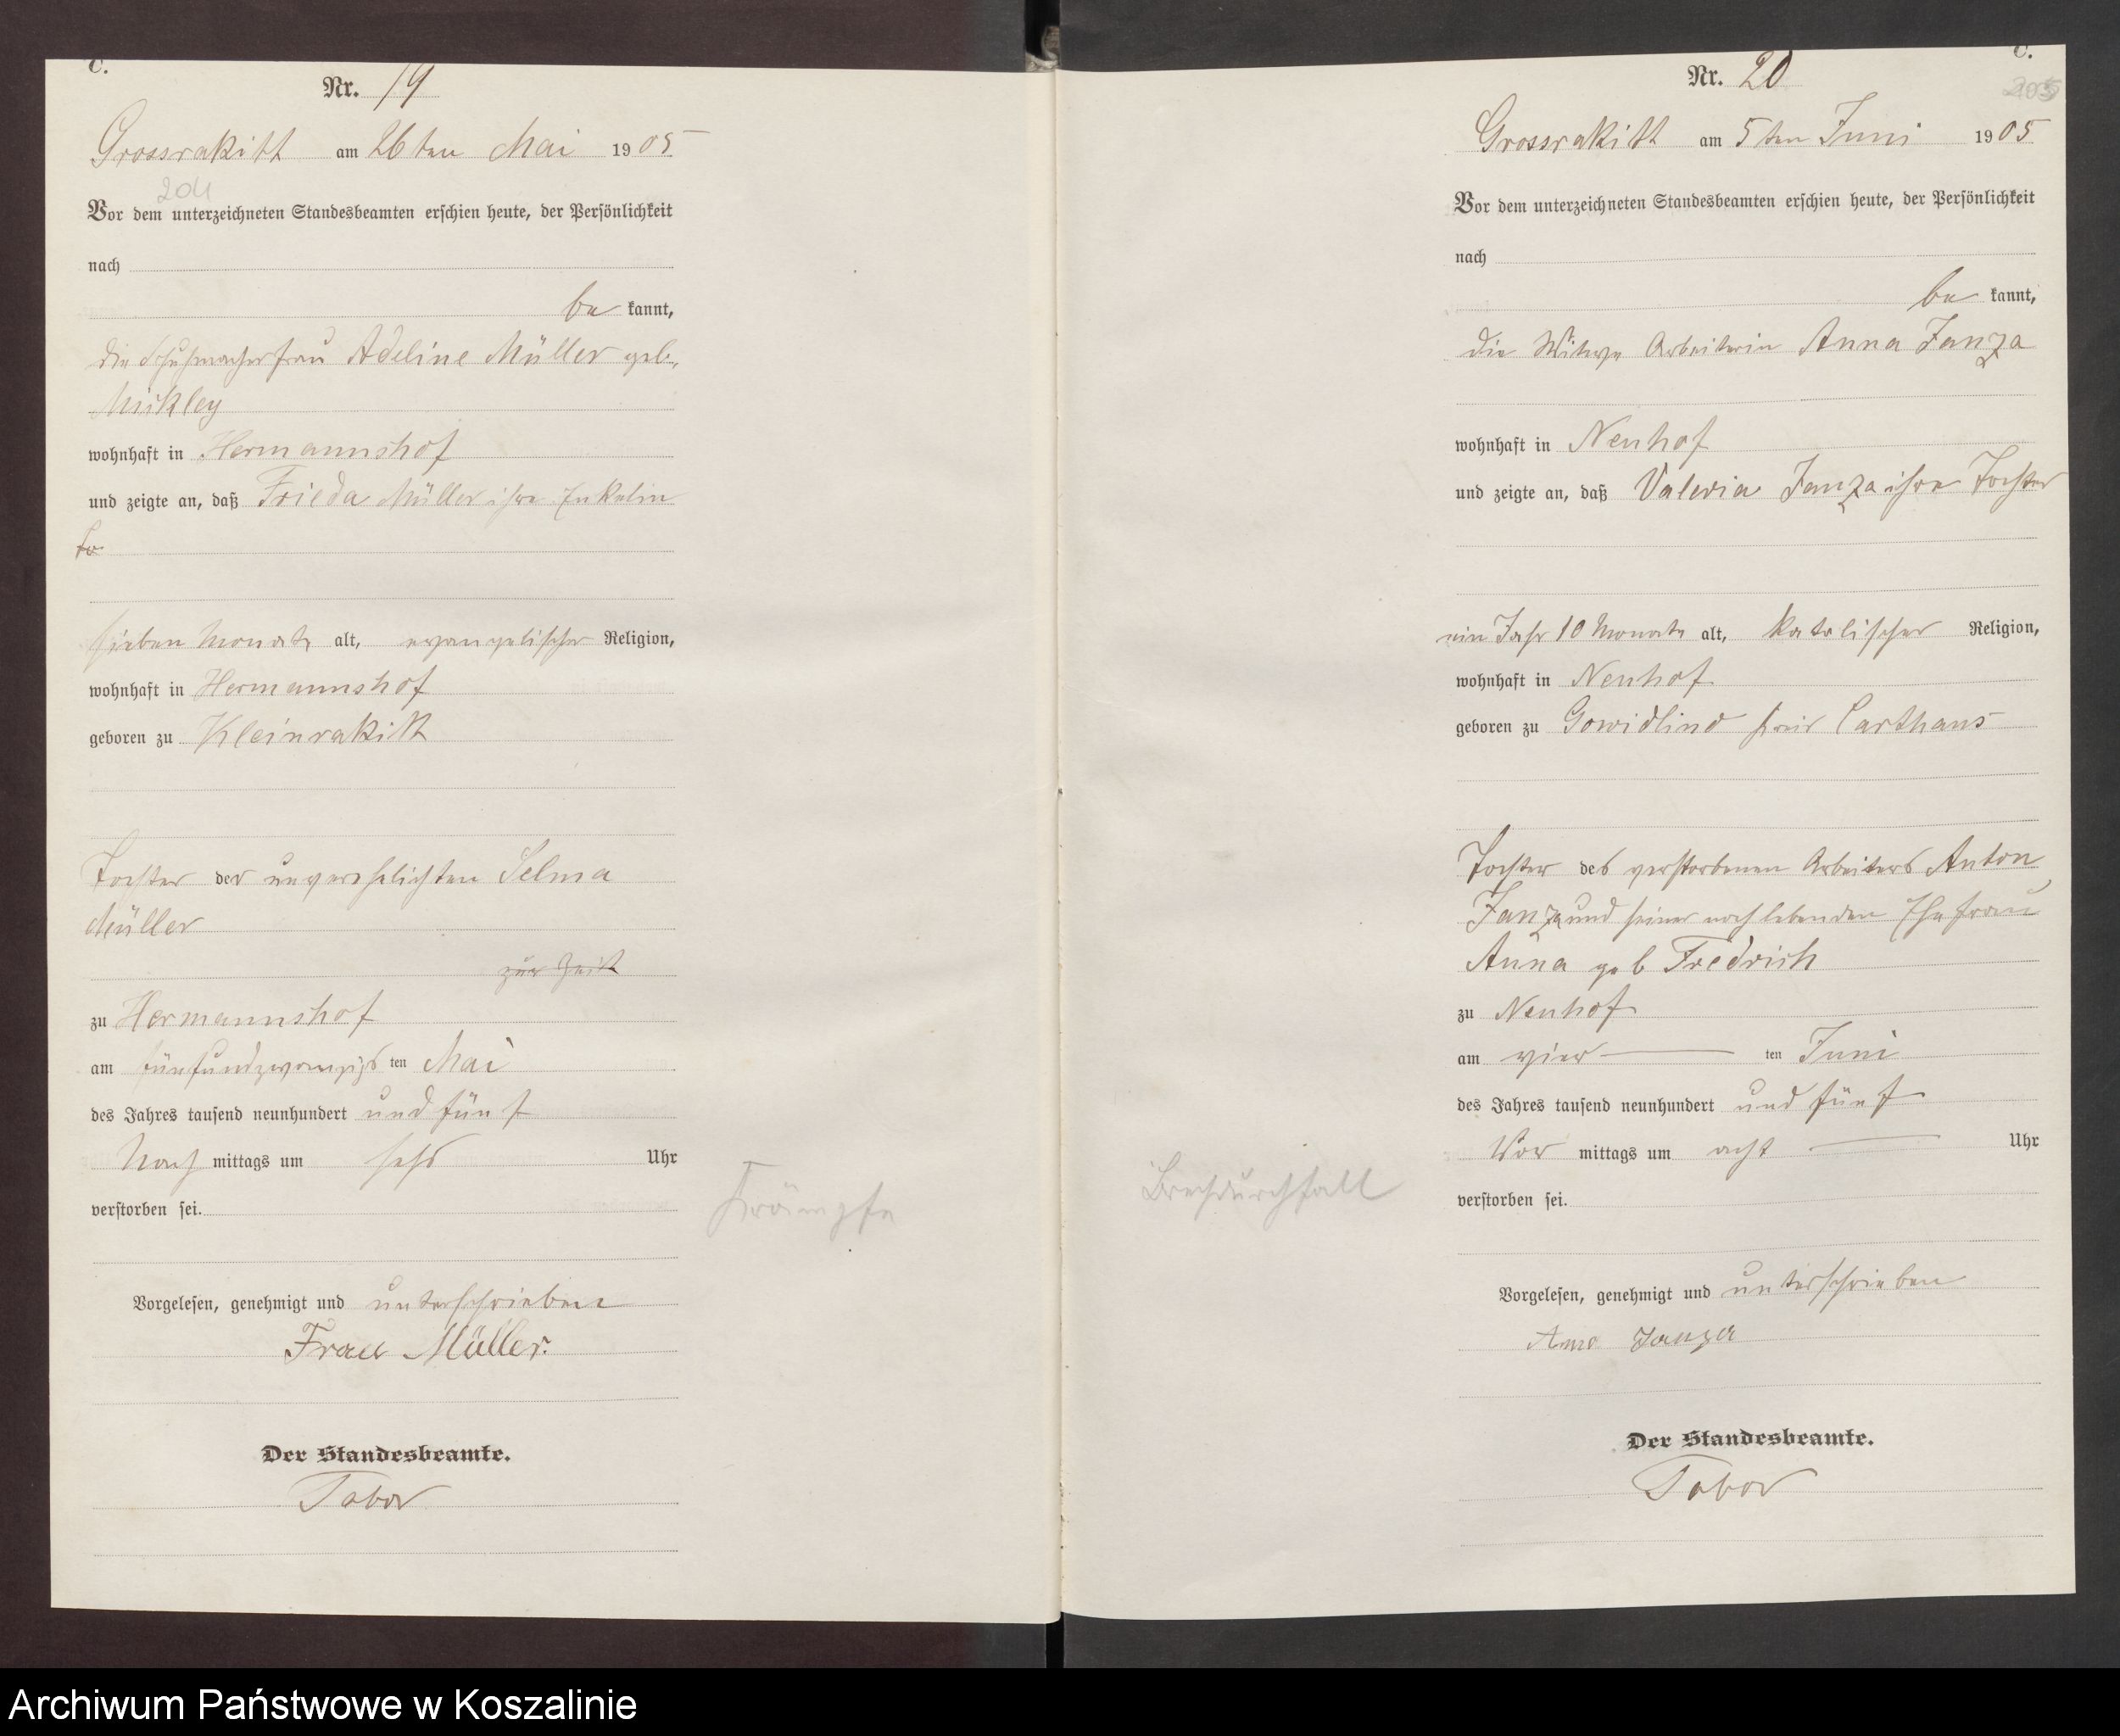 C.
Nr. 19
Grossrakitt am 26ten Mai 1905
204
Vor dem unterzeichneten Standesbeamten erschien heute, der Persönlichkeit
nach
be kannt,
die Schuhmacherfrau Adeline Müller geb.
Mickley
wohnhaft in Hermannshof
und zeigte an, daß Frieda Müller ihre Enkelin
sieben Monate alt, evangelischer Religion,
wohnhaft in Hermannshof
geboren zu Kleinrakitt
Tochter der unverehelichten Selma
Müller
zur Zeit
zu Hermannshof
am fünfundzwanzigsten Mai
des Jahres tausend neunhundert und fünf
Nach mittags um sechs Uhr
verstorben sei.
Krämpfe
Vorgelesen, genehmigt und unterschrieben
Frau Müller.
Der Standesbeamte.
Tabor
C.
Nr. 20
Grossrakitt am 5ten Juni 1905
Vor dem unterzeichneten Standesbeamten erschien heute, der Persönlichkeit
nach
be kannt,
die Witwe Arbeiterin Anna Janza
wohnhaft in Neuhof
und zeigte an, daß Valeria Janza ihre Tochter
ein Jahr 10 Monate alt, katolischer Religion,
wohnhaft in Neuhof
geboren zu Gowidlino Kreis Carthaus
Tochter des verstorbenen Arbeiters Anton
Janza und seiner noch lebenden Ehefrau
Anna geb Fredrich
zu Neuhof
am vier ten Juni
des Jahres tausend neunhundert und fünf
Vor mittags um acht Uhr
verstorben sei.
Brechdurchfall
Vorgelesen, genehmigt und unterschrieben
Anna Janza
Der Standesbeamte.
Tabor
Archiwum Państwowe w Koszalinie